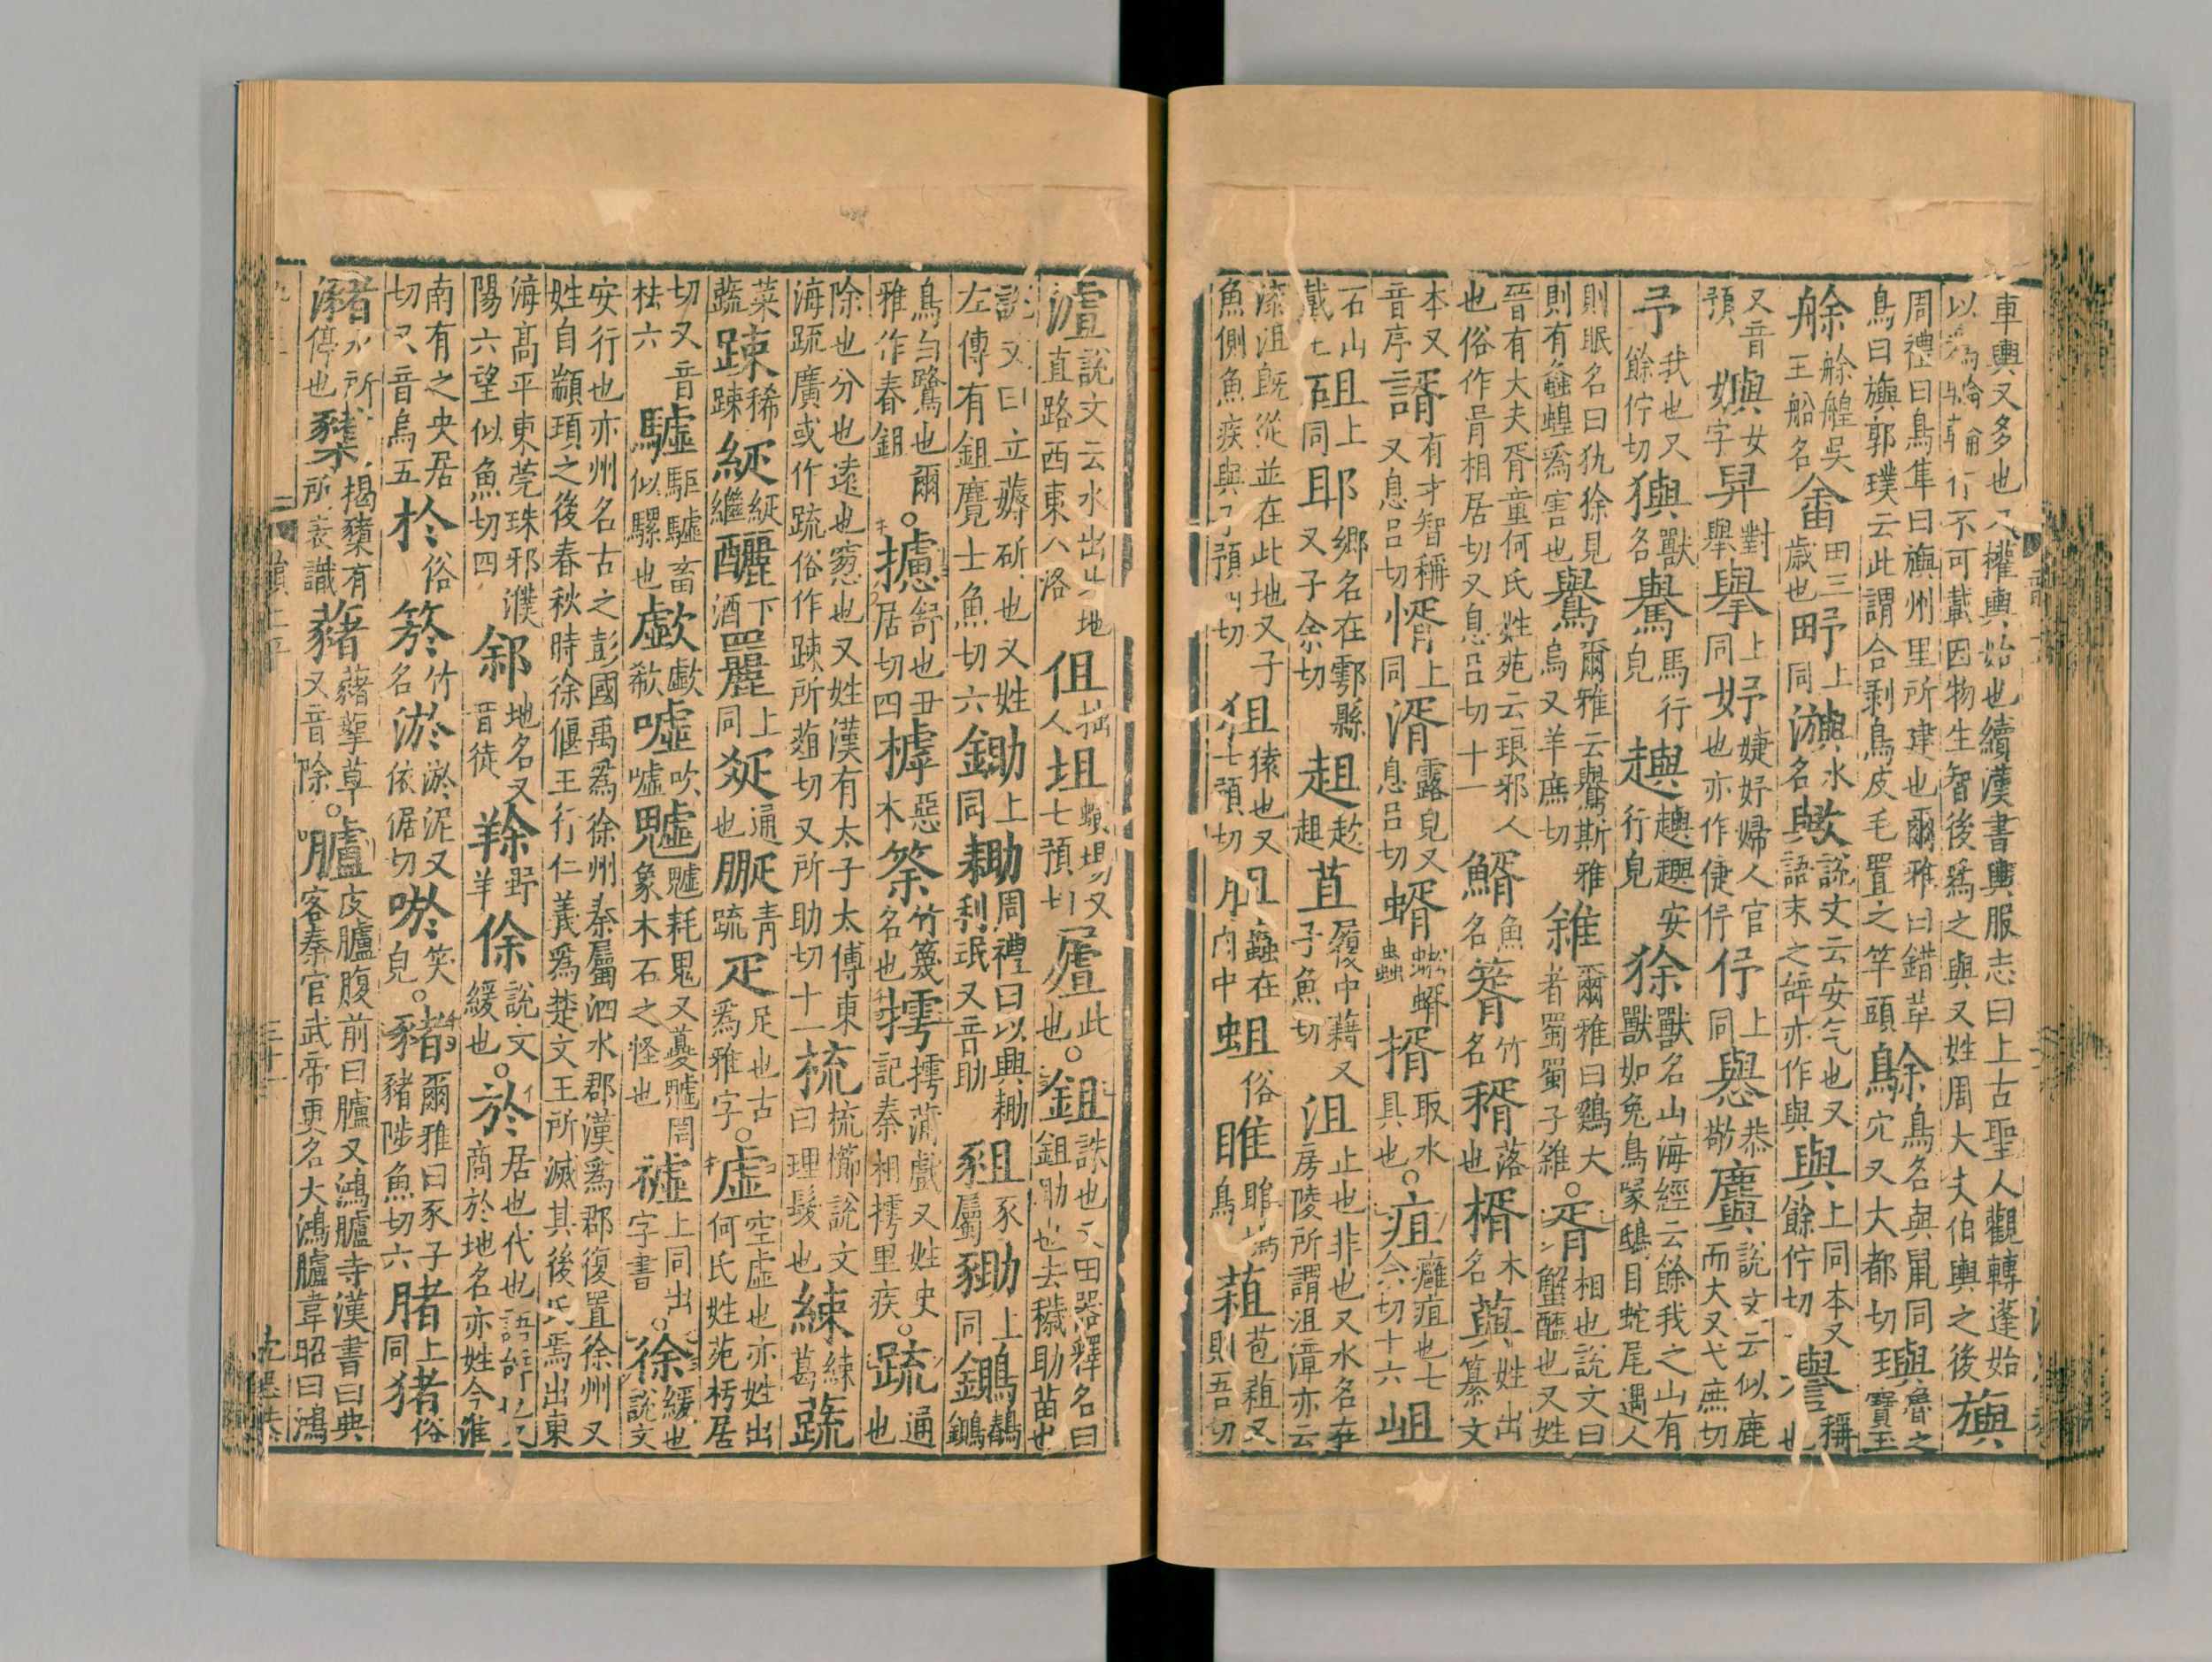 車輿又多也又權輿始也續漢書輿服志曰上古聖人觀轉蓬始以爲輪輪行不可載因物生智後爲之輿又姓周大夫伯輿之後旟
周禮曰鳥隼曰旟州里所建也爾雅曰錯革鳥曰旟郭璞云此謂合剥鳥皮毛置之竿頭鵌鳥名與鼠同穴又大都切璵魯之寶玉
艅艅艎吳王船名畬田三歲也㽥上同㵰水名歟說文云安气也又語末之辝亦作與與上同本又餘佇切譽稱也
又音預㜰女字舁對舉擧上同妤婕妤婦人官也亦作倢伃伃上同㦛恭敬䴁說文云似鹿而大又弋庶切
予我也又餘佇切㺞獸名馬行皃安行皃狳獸名山海經云餘我之山有獸如兔鳥喙鴟目蛇尾遇人
則眠名曰犰狳見則有螽蝗爲害也鸒爾雅云鸒斯雅烏又羊庶切雓爾雅曰鷄大者蜀蜀子雓○胥相也說文曰蟹醢也又姓
晉有大夫胥童何氏姓苑云琅邪人也俗作㣃相居切又息呂切十一䱬魚名䈝竹名稰落也楈木名姓出纂文
本又音序諝有才智稱又息呂切㥠上同湑露皃又息呂切蝑蜙蝑蟲揟取水具也○疽癰疽也七余切十六岨
石山戴土砠上同䢸鄉名在鄠縣又子余切趄趑趄苴履中藉又子魚切沮止也非也又水名在房陵所謂沮漳亦云
漆沮旣從並在此地又子魚側魚疾與子預四切狙猨也又七預切胆蟲在肉中蛆俗雎雎鳩鳥蒩苞蒩又則吾切
說文云水出北地直路西東入洛伹拙人坥螾場又七預切此也○鉏誅也又田器釋名曰鉏助也去穢助苗也
說文曰立薅斫也又姓左傳有鉏麑士魚切六鋤上同耡周禮曰以興耡利甿又音助豠豕屬上同鶵
鳥白鷺也爾雅作舂鉏○攄舒也丑居切四樗惡木筡竹篾名也摴摴蒱戲又姓史記秦相摴里疾○疏通也
除也分也遠也窻也又姓漢有太子太傅東海疏廣或作疎俗作踈所葅切又所助切十一梳梳櫛說文曰理髮也練練葛蔬
菜蔬踈稀踈綎綖繼釃下酒上同通也青疏疋足也古爲雅字○虛空虛也亦姓出何氏姓苑朽居
切又音袪六驉駏驉畜似騾也歔歔欷噓吹噓魖魖耗鬼又夔魖罔象木石之怪也上同出字書○徐緩也說文
安行也亦州名古之彭國禹爲徐州秦屬泗水郡漢爲郡復置徐州又姓自顓頊之後春秋時徐偃王行仁義爲楚文王所滅其後氏焉出東
海高平東莞琅邪濮陽六望似魚切四䣄地名又音徒䍱野羊俆說文緩也○於居也代也語辝也又商於地名亦姓今淮
南有之央居切又音烏五扵俗箊竹名淤淤泥又依倨切唹笑皃○豬爾雅曰豕子豬陟魚切六䐗上同猪俗
瀦水所停也櫫楬櫫有所表識藸藸䓯草又音除○臚皮臚腹前曰臚又鴻臚寺漢書曰典客秦官武帝更名大鴻臚韋昭曰鴻